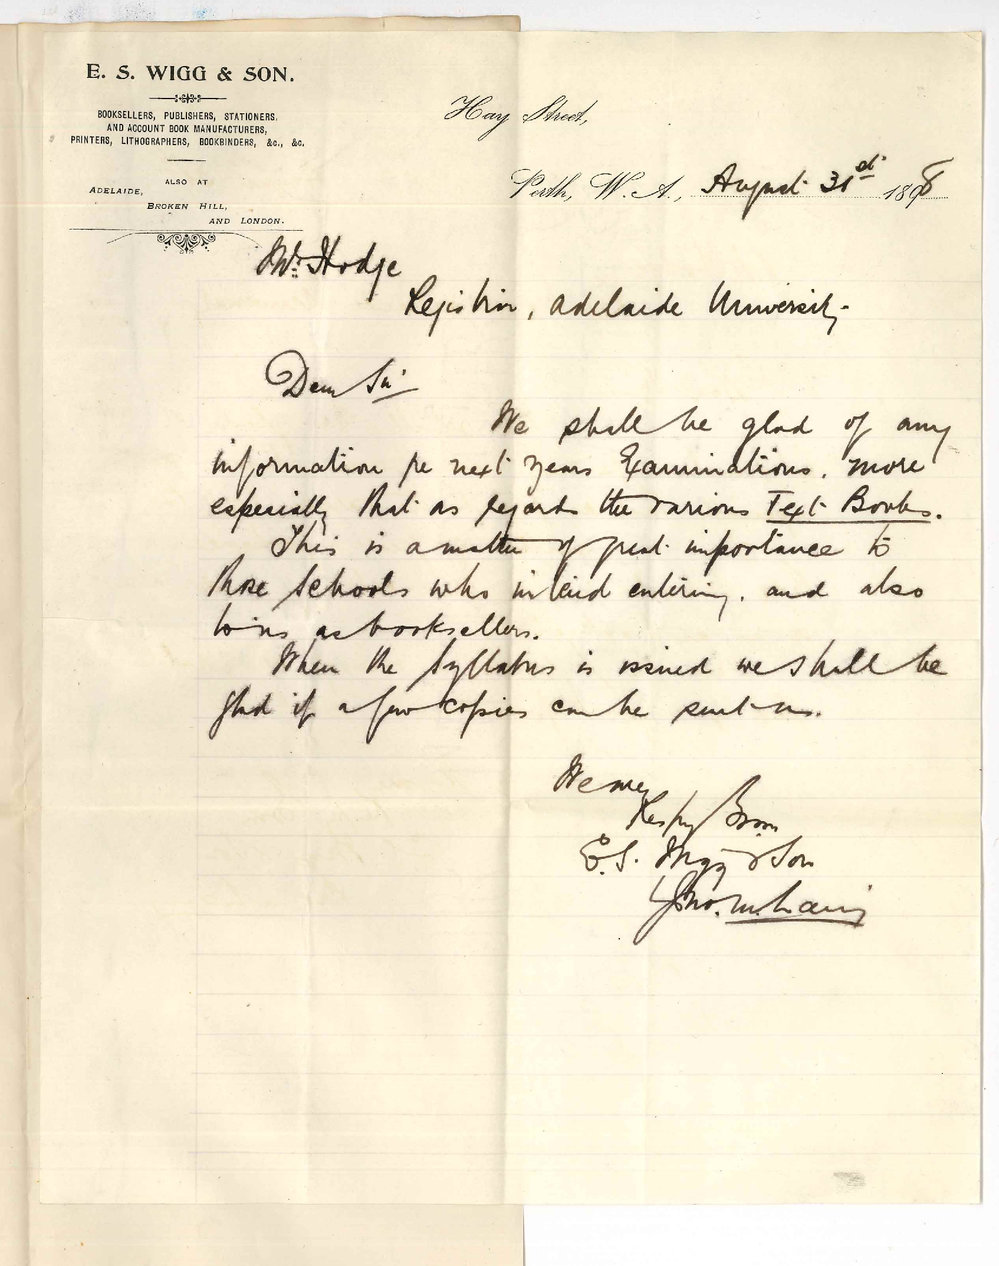 E. S. WIGG & SON.
BOOKSELLERS, PUBLISHERS, STATIONERS,
AND ACCOUNT BOOK MANUFACTURERS,
PRINTERS, LITHOGRAPHERS, BOOKBINDERS, &c., &c.
ALSO AT
ADELAIDE,
BROKEN HILL,
AND LONDON.
Hay Street,
Perth, W. A., August 31st 1898
Mr. Hodge
Registrar, Adelaide University
Dear Sir
We shall be glad of any
information re next years Examinations, more
especially that as regards the various Text Books.
This is a matter of great importance to
those Schools who intend entering, and also
to us as booksellers.
When the Syllabus is issued we shall be
glad if a few copies can be sent us.
We are
Respy Yours
E. S. Wigg & Son
Jno. M.